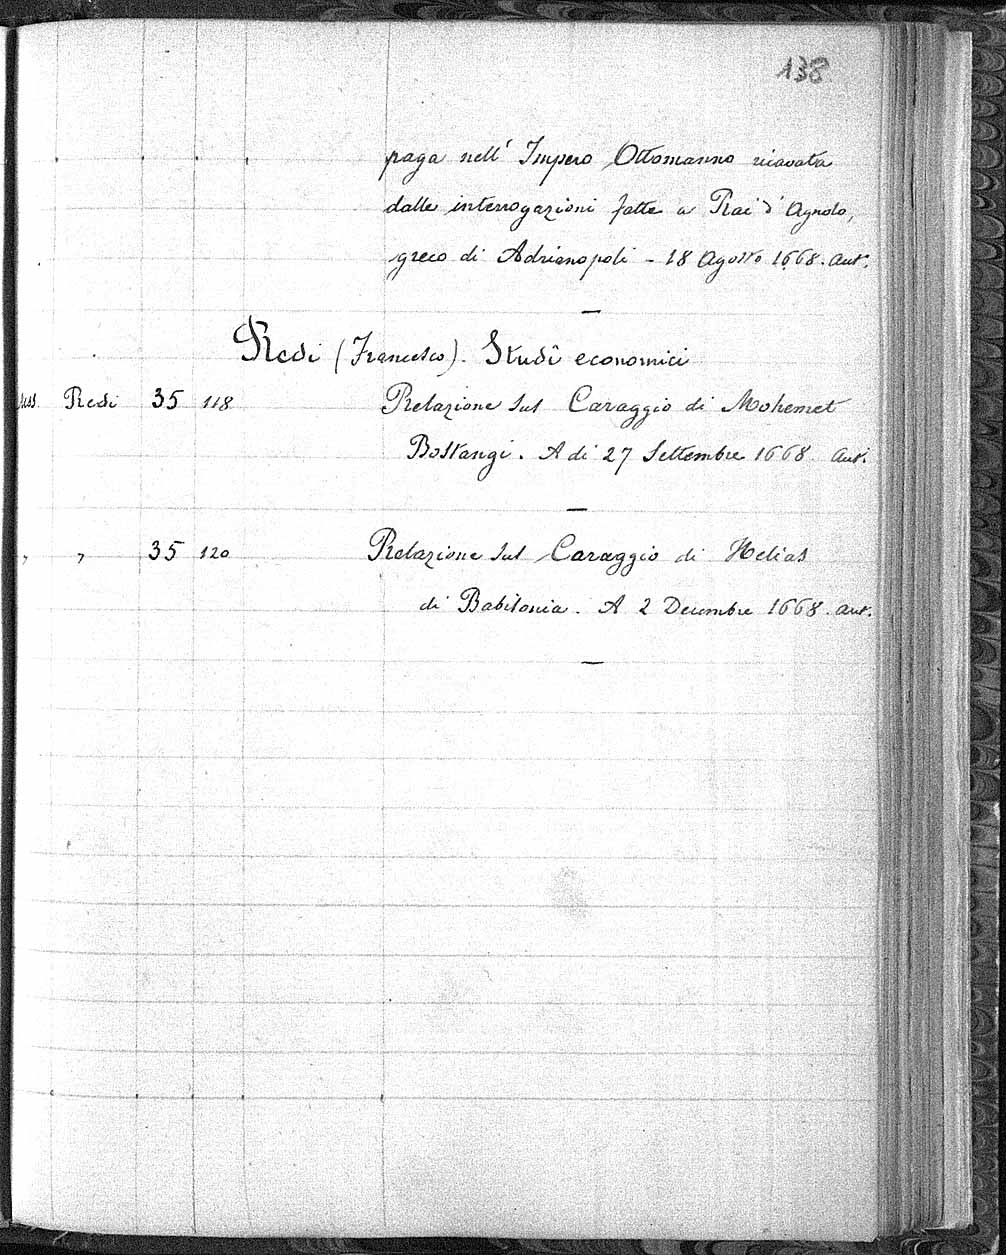 138
paga nell' Impero Ottomanno ricavata
dalle interrogazioni fatte a Rai d' Agnolo,
greco di Adrianopoli - 18 Agosto 1668. aut.
Redi (Francesco). Studî economici
Mss. Redi 35 118 Relazione sul Caraggio di Mohemet
Bostangi. A dì 27 Settembre 1668. aut.
" " 35 120 Relazione sul Caraggio di Helias
di Babilonia. A 2 Decembre 1668. aut.